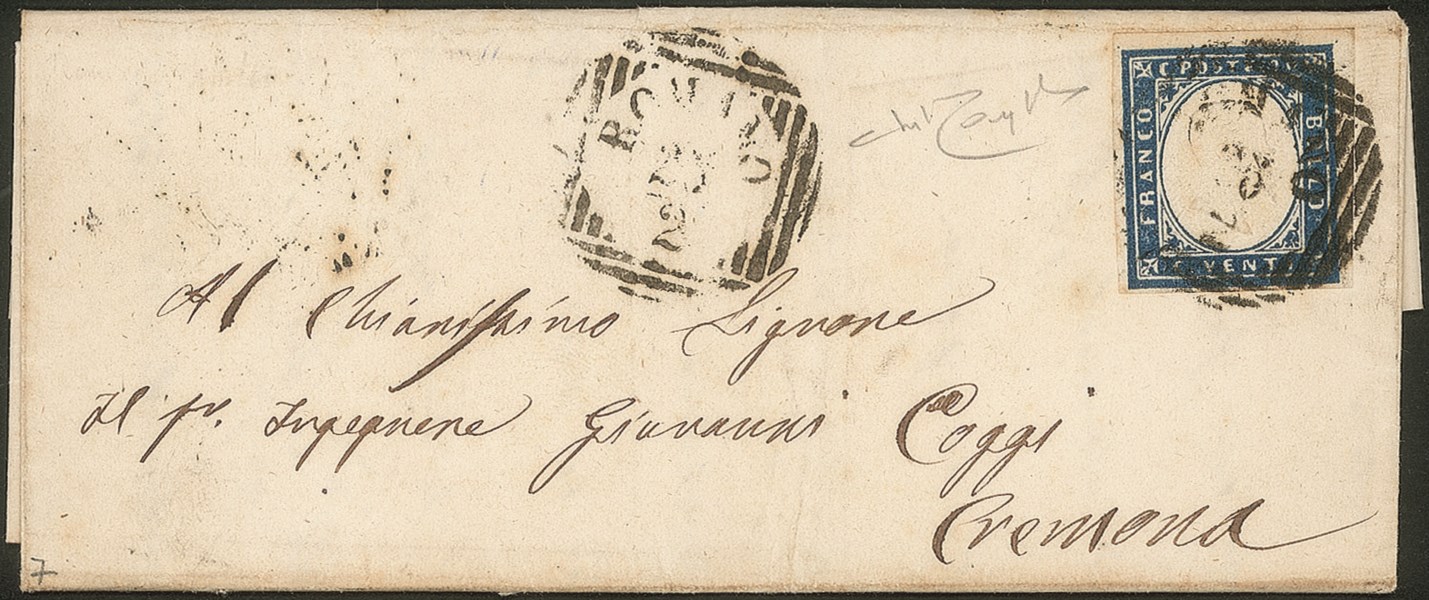 ROMANO
FRANCO
C. VENTI
Al Chiarissimo Signore
Il Sr. Ingegnere Giovanni Coggi
Cremona
7